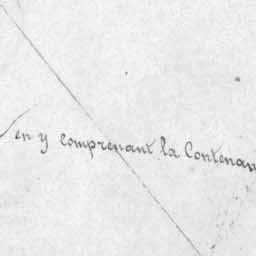 en y comprenant la Contenan